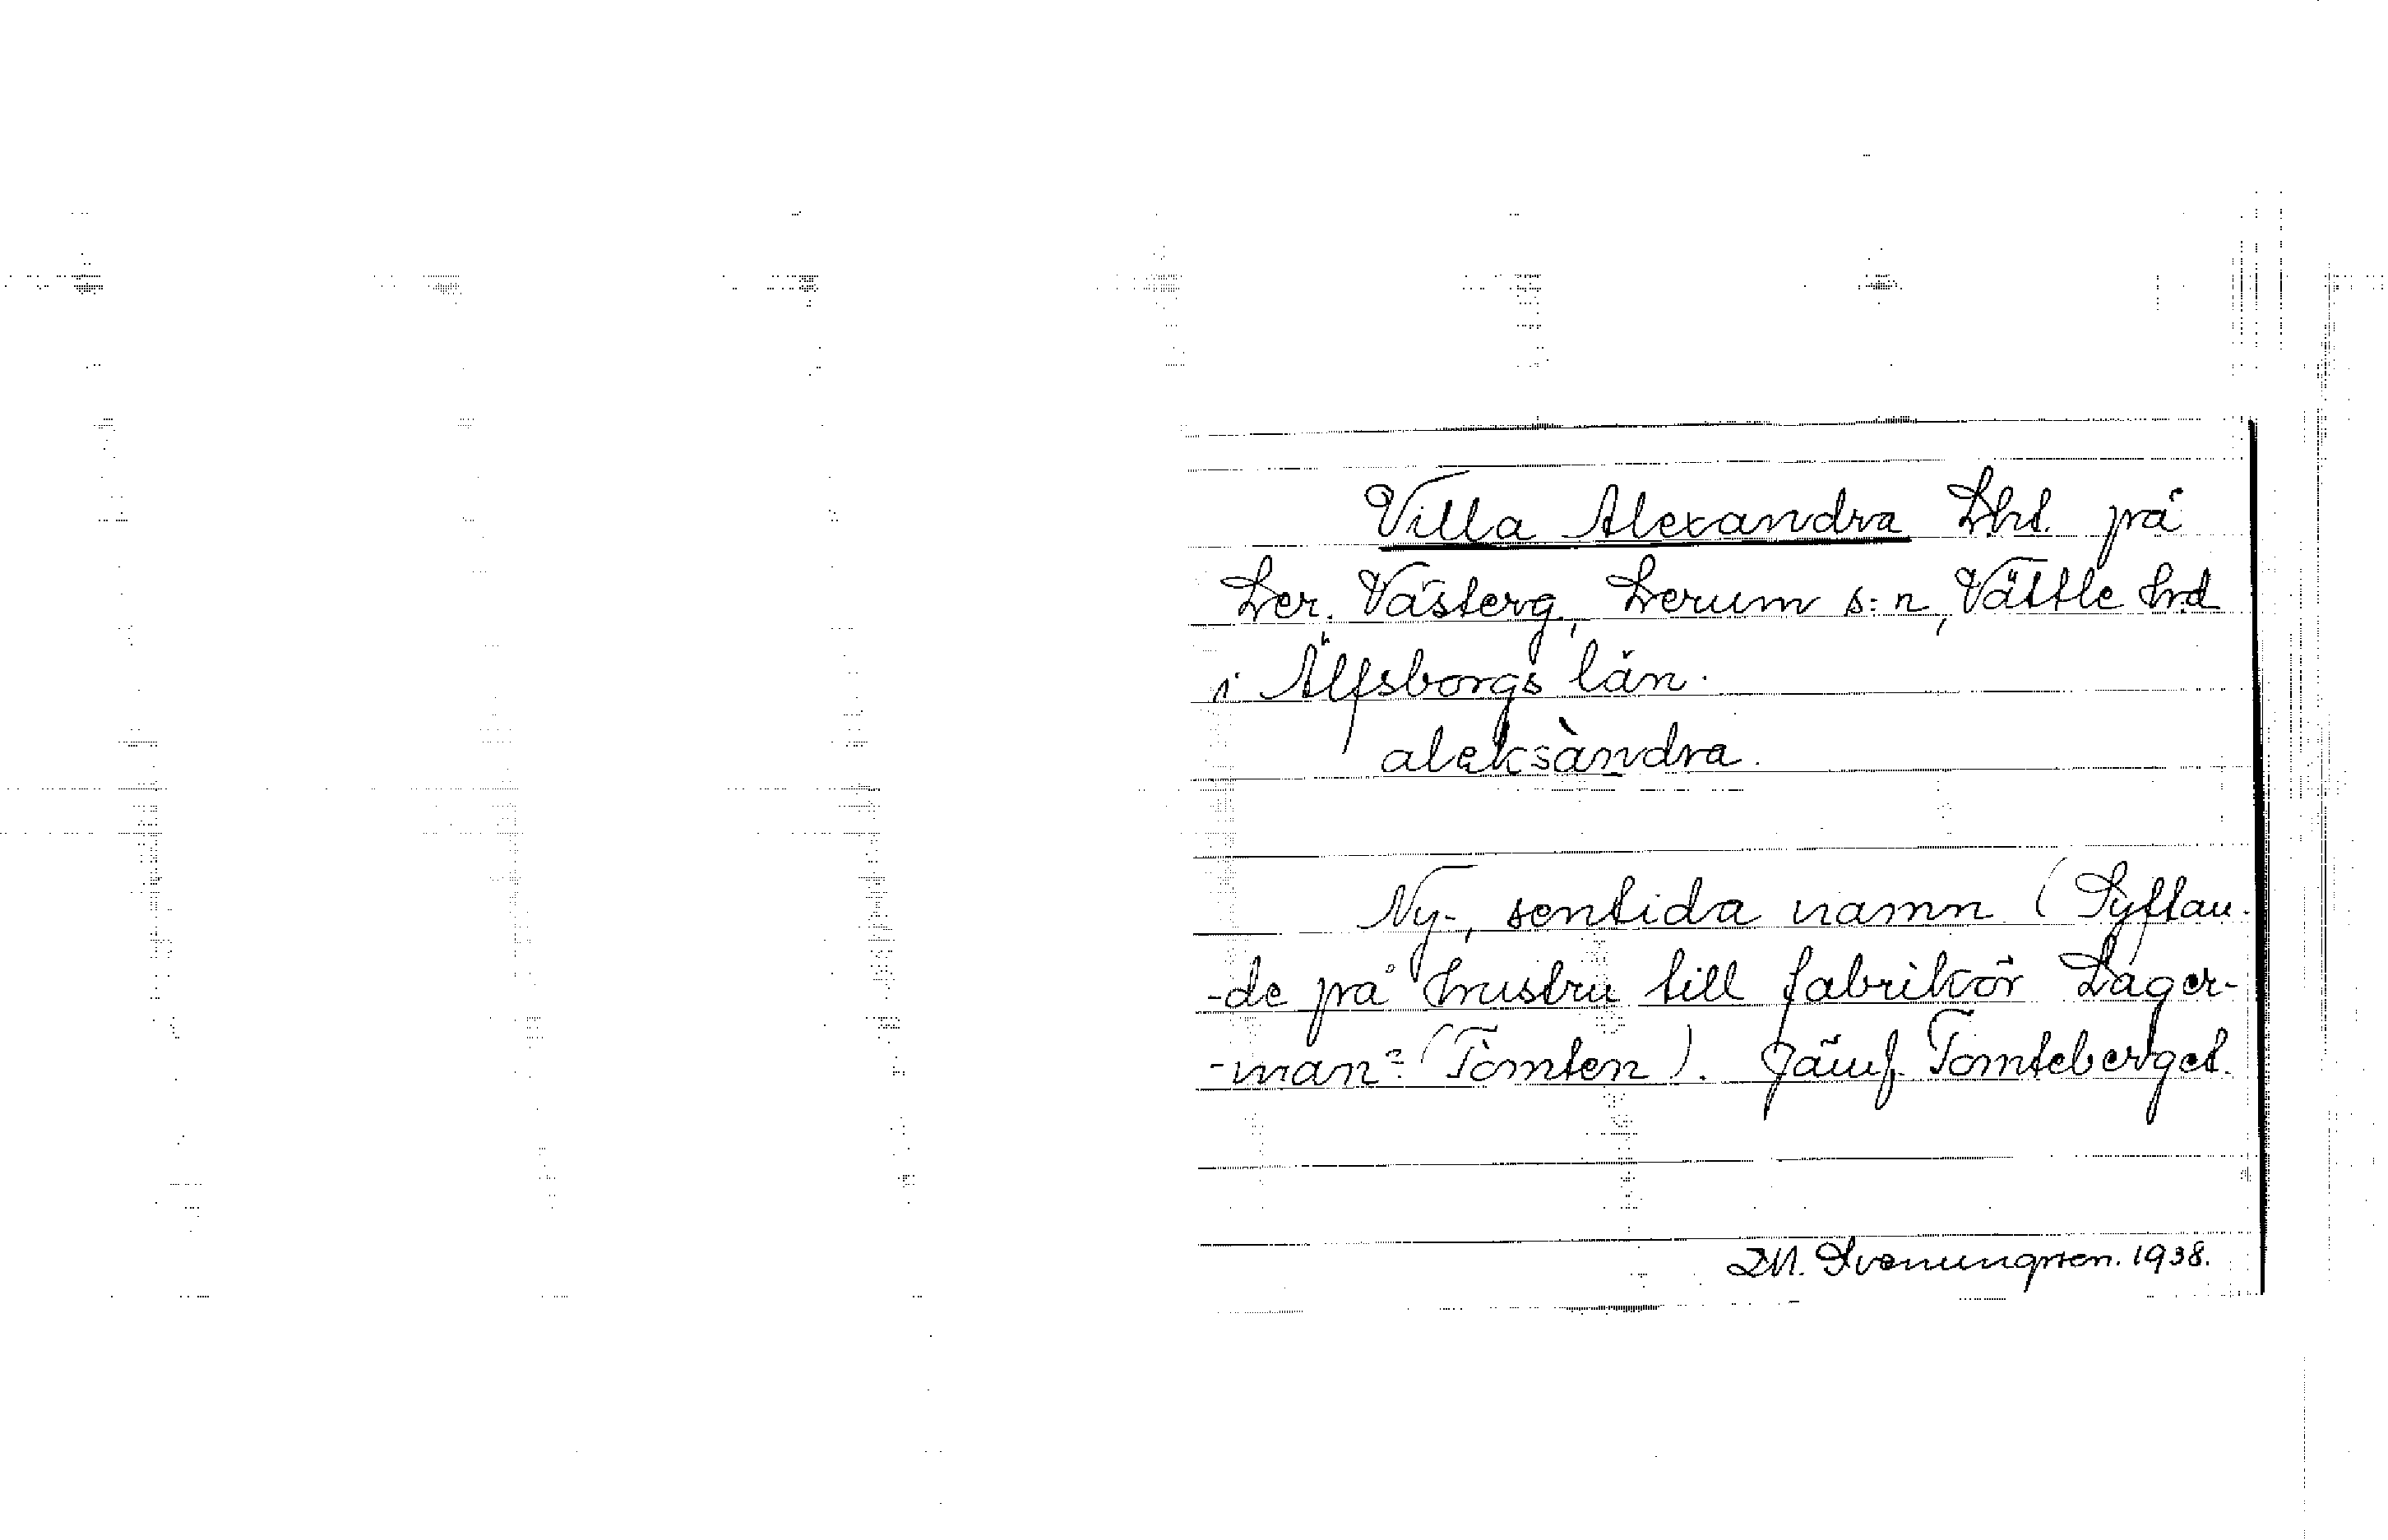 Villa Alexandra Lht. på
Ler. Västerg., Lerum s:n, Vättle hrd
i Älfsborgs län.
aleksàndra.
Ny-, sentida namn (Syftan-
-de på hustru till fabrikör Lager-
-man? (Tomten). Jämf. Tomteberget.
Svenungsson. 1938.